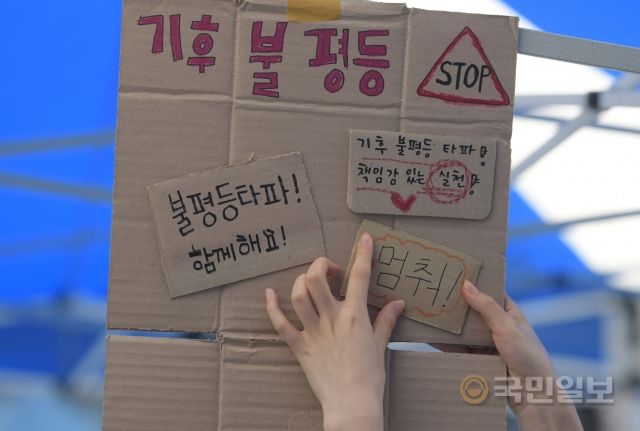 기후 불평등
STOP
기후 불평등 타파!
책임감 있는 실천!
불평등타파!
함께해요!
멈춰!
국민일보